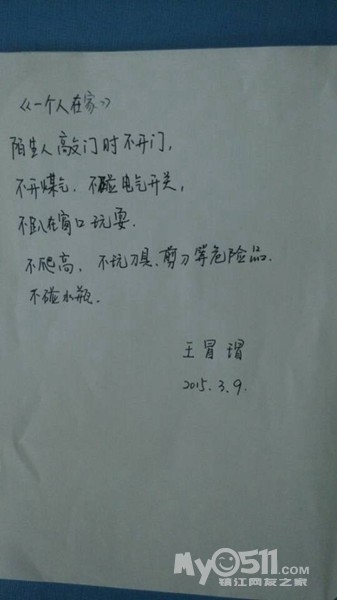 《一个人在家》
陌生人敲门时不开门,
不开煤气、不碰电气开关,
不趴在窗口玩耍.
不爬高、不玩刀具.剪刀等危险品.
不碰水瓶.
王冒瑁
2015.3.9.
My0511.com
镇江网友之家